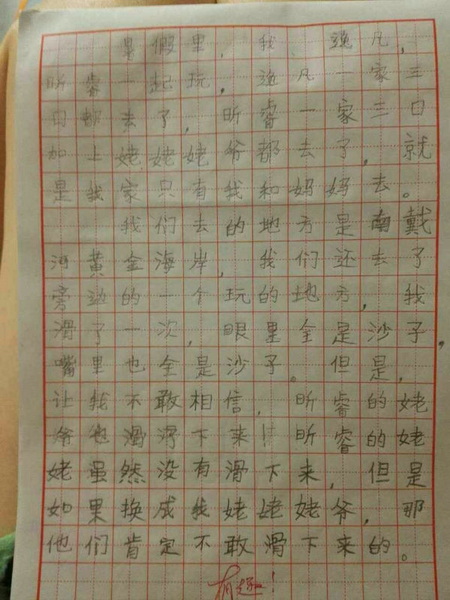 暑假里，我、逸凡，
昕睿一起玩。逸凡一家三
口都去了，昕睿一家三口
加上姥姥姥爷都去了，就
是我家只有我和妈妈去。
我们去的地方是南戴
河黄金海岸，我们还去了
旁边的一个玩的地方，我
滑了一次，眼里全是沙子，
嘴里也全是沙子。但是，
让我不敢相信，昕睿的姥
爷也滑滑下来！昕睿的姥
姥虽然没有滑下来，但是
如果换成我姥姥姥爷，那
他们肯定不敢滑下来的。
有趣！